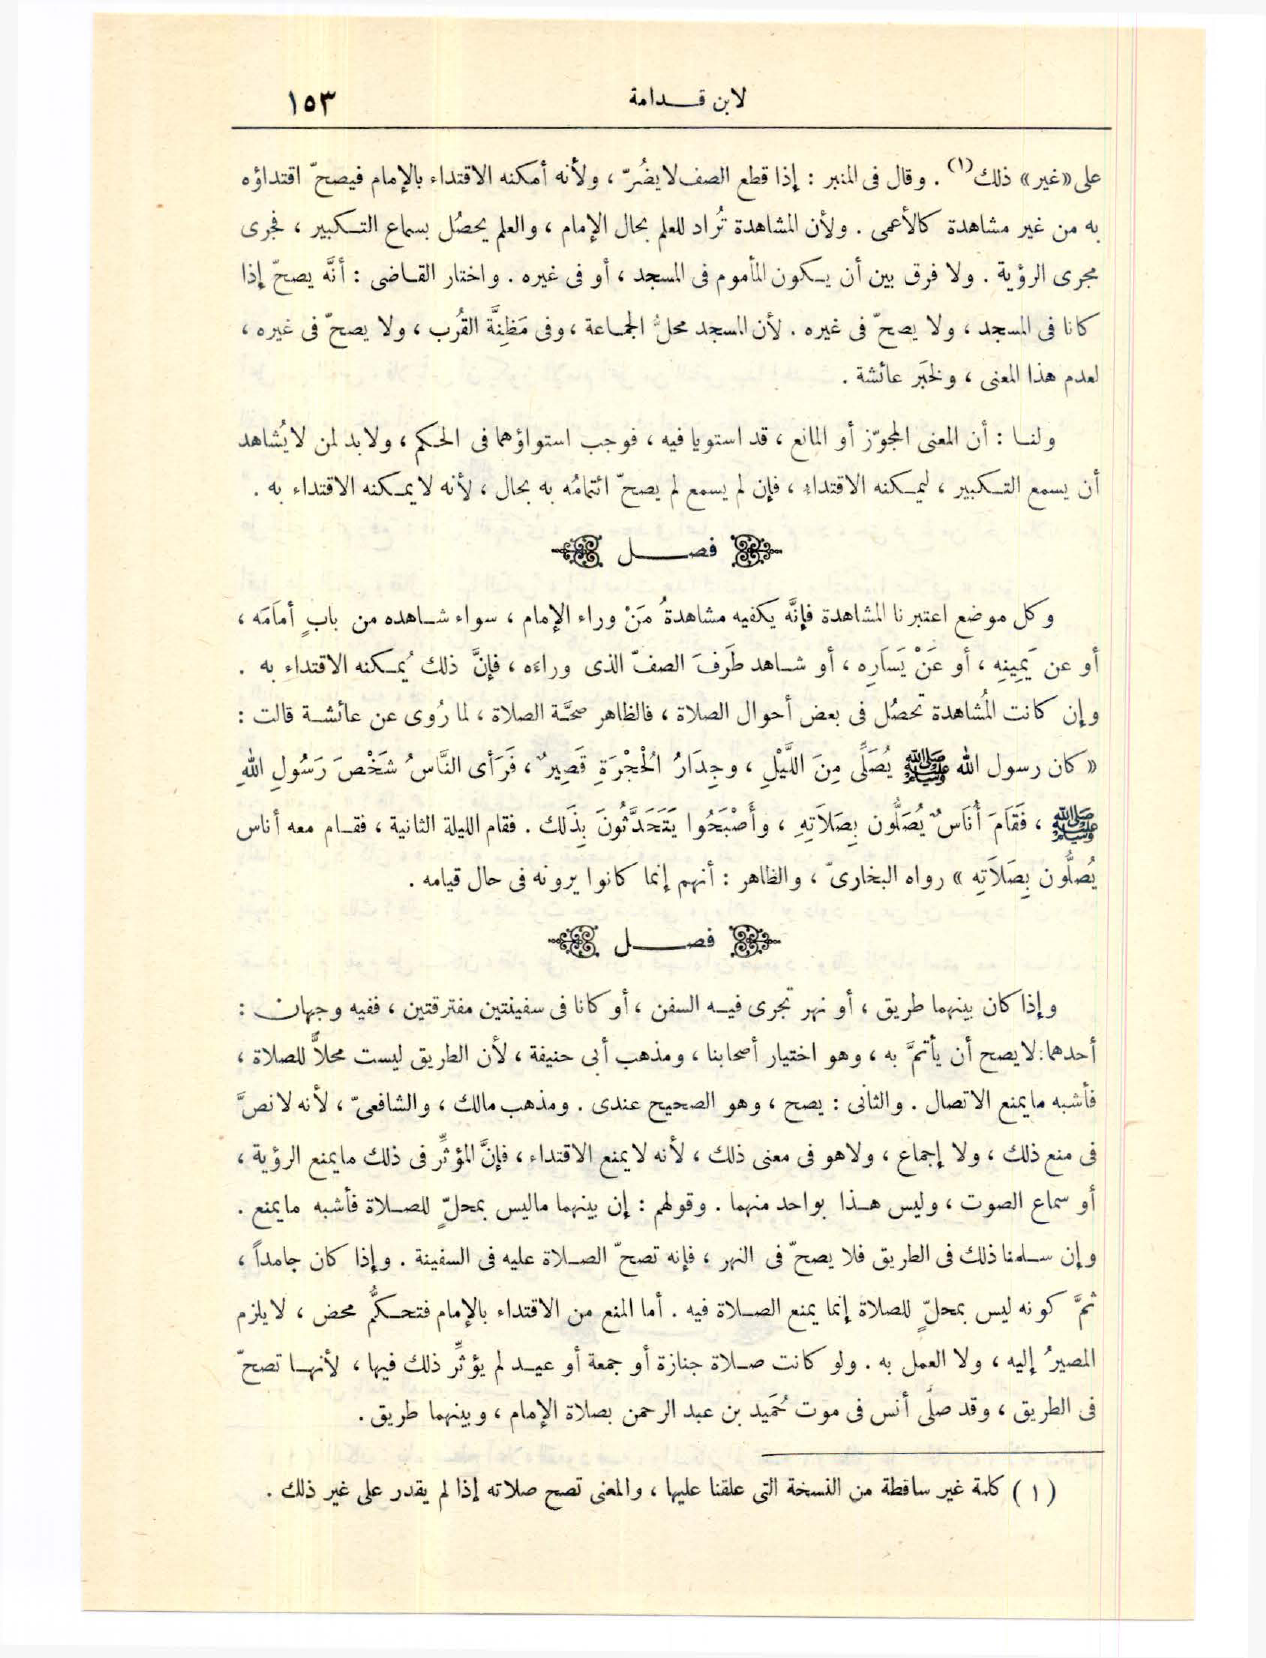 لابن قدامة ١٥٣
على «غير» ذلك (١) . وقال فى المنبر : إذا قطع الصف لا يضُرّ ، ولأنه أمكنه الاقتداء بالإمام فيصحّ اقتداؤه
به من غير مشاهدة كالأعمى . ولأن المشاهدة تُراد للعلم بحال الإمام ، والعلم يحصُل بسماع التكبير ، فجرى
مجرى الرؤية . ولا فرق بين أن يكون المأموم فى المسجد ، أو فى غيره . واختار القاضى : أنَّه يصحّ إذا
كانا فى المسجد ، ولا يصحّ فى غيره . لأن المسجد محلُّ الجماعة ، وفى مَظِنَّة القُرب ، ولا يصحّ فى غيره ،
لعدم هذا المعنى ، ولخبَر عائشة .
ولنا : أن المعنى المجوّز أو المانع ، قد استويا فيه ، فوجب استواؤهما فى الحكم ، ولا بد لمن لا يُشاهد
أن يسمع التكبير ، ليمكنه الاقتداء ، فإن لم يسمع لم يصحّ ائتمامُه به بحال ، لأنه لا يمكنه الاقتداء به .
فصل
وكل موضع اعتبرنا المشاهدة فإنَّه يكفيه مشاهدةُ مَنْ وراء الإمام ، سواء شاهده من بابٍ أمامَه ،
أو عن يَمِينِه ، أو عَنْ يَسَارِه ، أو شاهد طَرَفَ الصفّ الذى وراءه ، فإنَّ ذلك يُمكنه الاقتداء به .
وإن كانت المُشاهدة تحصُل فى بعض أحوال الصلاة ، فالظاهر صحَّة الصلاة ، لما رُوى عن عائشة قالت :
« كان رسول الله ﷺ يُصَلِّى مِنَ اللَّيْلِ ، وجِدَارُ الْحُجْرَةِ قَصِيرٌ ، فَرَأى النَّاسُ شَخْصَ رَسُولِ اللهِ
ﷺ ، فَقَامَ أُنَاسٌ يُصَلُّون بِصَلَاتِهِ ، وأَصْبَحُوا يَتَحَدَّثُونَ بِذَلك . فقام الليلة الثانية ، فقام معه أناس
يُصلُّون بِصَلَاَتِه » رواه البخارىّ ، والظاهر : أنهم إنما كانوا يرونه فى حال قيامه .
فصل
وإذا كان بينهما طريق ، أو نهر تجرى فيه السفن ، أو كانا فى سفينتين مفترقتين ، ففيه وجهان :
أحدهما : لا يصح أن يأتمَّ به ، وهو اختيار أصحابنا ، ومذهب أبى حنيفة ، لأن الطريق ليست محلاًّ للصلاة ،
فأشبه ما يمنع الاتصال . والثانى : يصح ، وهو الصحيح عندى . ومذهب مالك ، والشافعىّ ، لأنه لا نصَّ
فى منع ذلك ، ولا إجماع ، ولا هو فى معنى ذلك ، لأنه لا يمنع الاقتداء ، فإنَّ المؤثِّر فى ذلك ما يمنع الرؤية ،
أو سماع الصوت ، وليس هذا بواحد منهما . وقولهم : إن بينهما ماليس بمحلّ للصلاة فأشبه ما يمنع .
وإن سلمنا ذلك فى الطريق فلا يصحّ فى النهر ، فإنه تصحّ الصلاة عليه فى السفينة . وإذا كان جامداً ،
ثمَّ كونه ليس بمحلّ للصلاة إنما يمنع الصلاة فيه . أما المنع من الاقتداء بالإمام فتحكُّم محض ، لا يلزم
المصيرُ إليه ، ولا العمل به . ولو كانت صلاة جنازة أو جمعة أو عيد لم يؤثِّر ذلك فيها ، لأنها تصحّ
فى الطريق ، وقد صلَّى أنس فى موت حُمَيد بن عبد الرحمن بصلاة الإمام ، وبينهما طريق .
( ١ ) كلمة غير ساقطة من النسخة التى علقنا عليها ، والمعنى تصح صلاته إذا لم يقدر على غير ذلك .